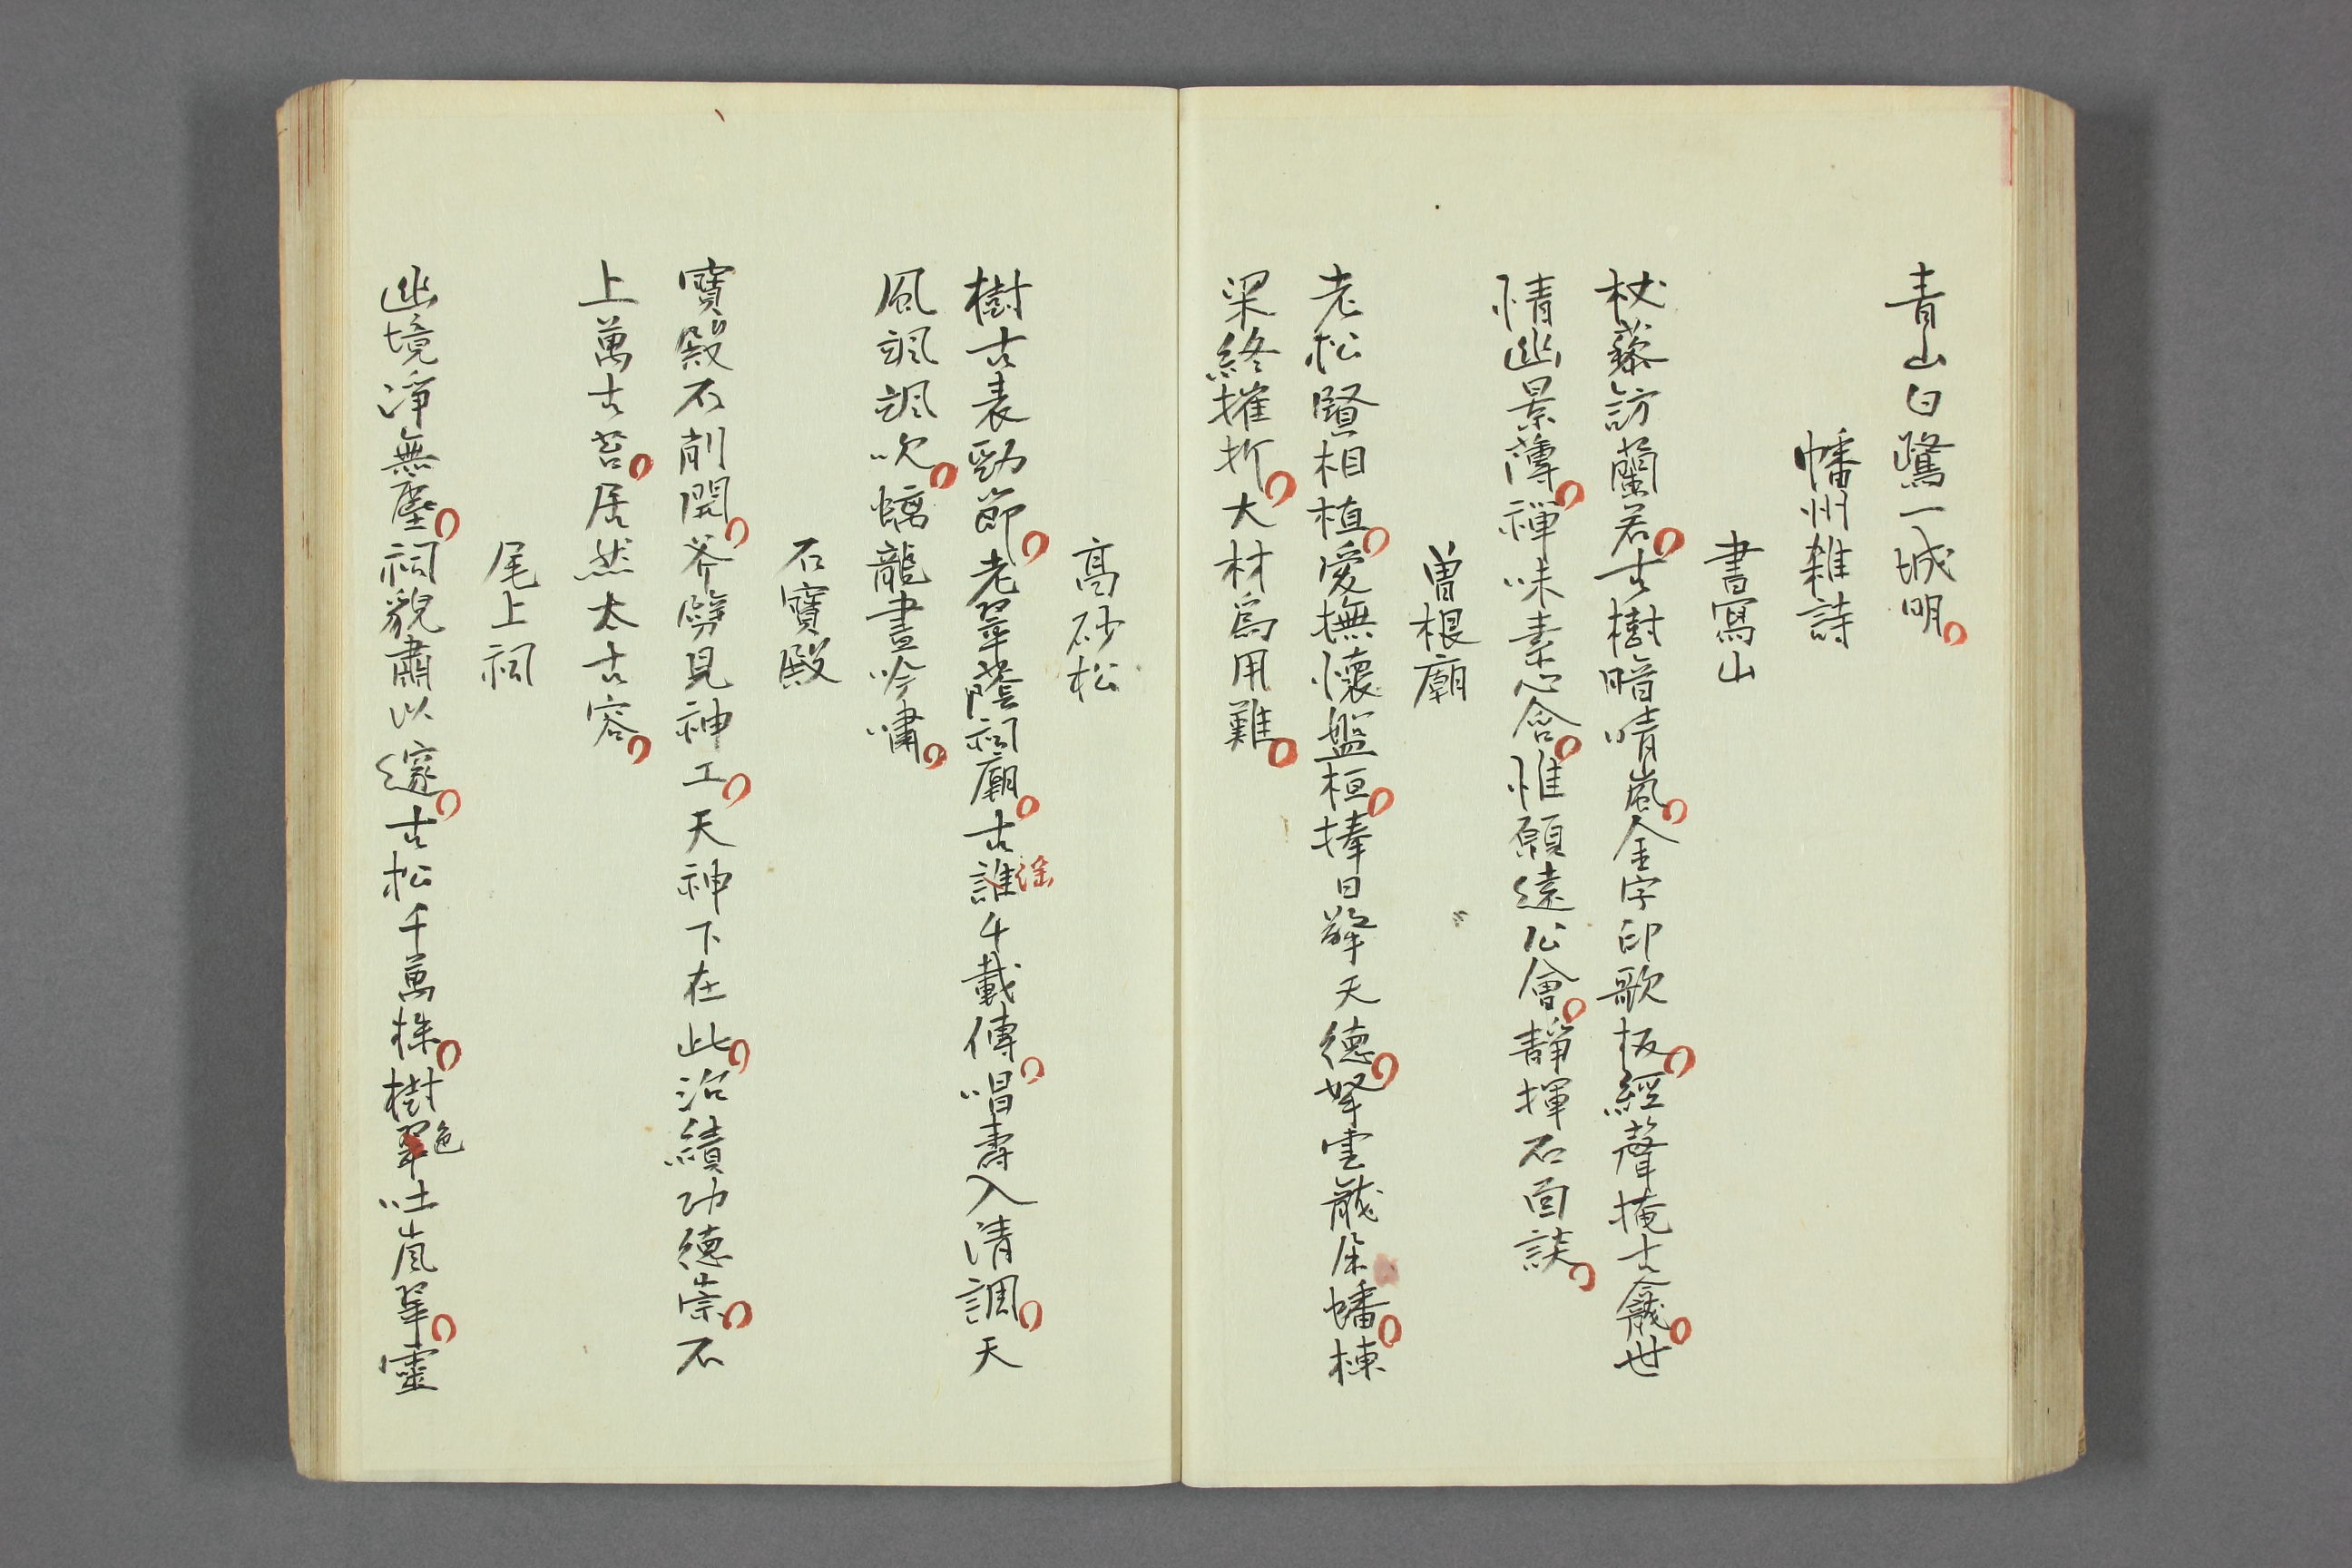 青山白鷺一城明。
幡州雑詩
書寫山
杖藜訪蘭若。古樹暗晴嵐。金字印歌板。經聲掩古龕。世
情幽景薄。禪味素心含。惟願遠公會。靜揮石面談。
曽根廟
老松賢相植。愛撫懷盤桓。捧日擎天德。拏雲龍朶蟠。棟
梁終摧折。大材爲用難。
高砂松
樹古表勁節。老翠蔭祠廟。古謡誰千載傳。唱壽入清調。天
風颯颯吹。螭龍晝吟嘯。
石寶殿
寶殿不削開。斧劈見神工。天神下在此。治績功德崇。石
上萬古苔。居然太古容。
尾上祠
幽境淨無塵。祠貌肅以邃。古松千萬株。樹翠色吐嵐翠。靈